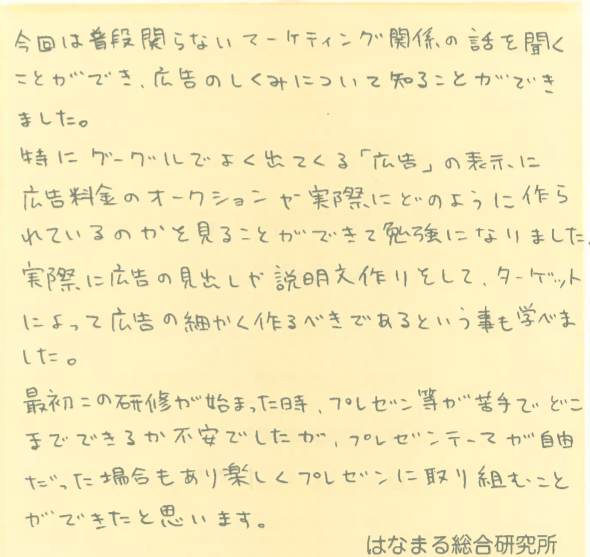 今回は普段関らないマーケティング関係の話を聞く
ことができ、広告のしくみについて知ることができ
ました。
特にグーグルでよく出てくる「広告」の表示に
広告料金のオークションや実際にどのように作ら
れているのかを見ることができて勉強になりました。
実際に広告の見出しや説明文作りをして、ターゲット
によって広告の細かく作るべきであるという事も学べま
した。
最初この研修が始まった時、プレゼン等が苦手でどこ
までできるか不安でしたが、プレゼンテーマが自由
だった場合もあり楽しくプレゼンに取り組むこと
ができたと思います。
はなまる総合研究所